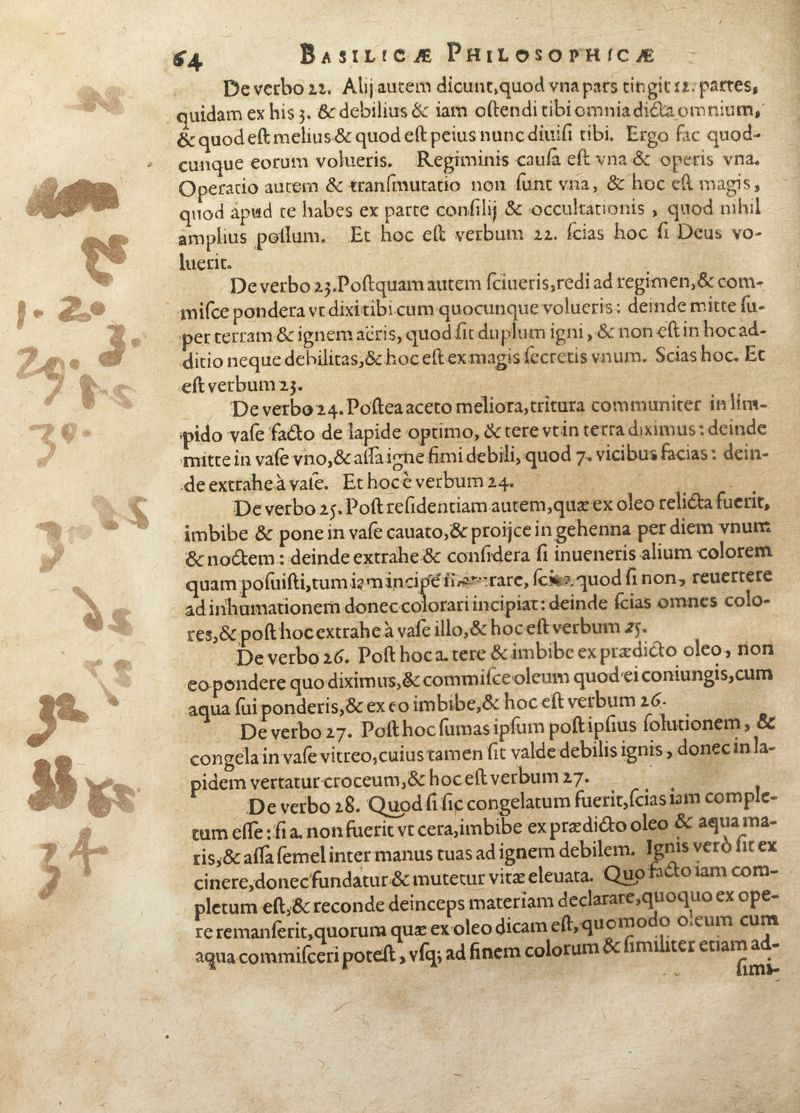 64 BASILICÆ PHILOSOPHICÆ
De verbo 22. Alij autem dicunt, quod vna pars tingit 12. partes,
quidam ex his 3. & debilius & iam ostendi tibi omnia dicta omnium,
& quod est melius & quod est peius nunc diuisi tibi. Ergo fac quod-
cunque eorum volueris. Regiminis causa est vna & operis vna.
Operatio autem & transmutatio non sunt vna, & hoc est magis,
quod apud te habes ex parte consilij & occultationis, quod nihil
amplius possum. Et hoc est verbum 22. scias hoc si Deus vo-
luerit.
De verbo 23. Postquam autem sciueris, redi ad regimen, & com-
misce pondera vt dixi tibi cum quocunque volueris: deinde mitte su-
per terram & ignem aëris, quod sit duplum igni, & non est in hoc ad-
ditio neque debilitas, & hoc est ex magis secretis vnum. Scias hoc. Et
est verbum 23.
De verbo 24. Postea aceto meliora, tritura communiter in lim-
pido vase facto de lapide optimo, & tere vt in terra diximus: deinde
mitte in vase vno, & assa igne fimi debili, quod 7. vicibus facias: dein-
de extrahe à vase. Et hoc è verbum 24.
De verbo 25. Post residentiam autem, quæ ex oleo relicta fuerit,
imbibe & pone in vase cauato, & proijce in gehenna per diem vnum
& noctem: deinde extrahe & considera si inueneris alium colorem
quam posuisti, tum iam incipe rare, quod si non, reuertere
ad inhumationem donec colorari incipiat: deinde scias omnes colo-
res, & post hoc extrahe à vase illo, & hoc est verbum 25.
De verbo 26. Post hoc a. tere & imbibe ex prædicto oleo, non
eo pondere quo diximus, & commisce oleum quod ei coniungis, cum
aqua sui ponderis, & ex eo imbibe, & hoc est verbum 26.
De verbo 27. Post hoc sumas ipsum post ipsius solutionem, &
congela in vase vitreo, cuius tamen sit valde debilis ignis, donec in la-
pidem vertatur croceum, & hoc est verbum 27.
De verbo 28. Quod si sic congelatum fuerit, scias iam comple-
tum esse: si a. non fuerit vt cera, imbibe ex prædicto oleo & aqua ma-
ris, & assa semel inter manus tuas ad ignem debilem. Ignis verò sit ex
cinere, donec fundatur & mutetur vitæ eleuata. Quo facto iam com-
pletum est, & reconde deinceps materiam declarare, quoquo ex ope-
re remanserit, quorum quæ ex oleo dicam est, quomodo oleum cum
aqua commisceri potest, vsq; ad finem colorum & similiter etiam ad-
simi-